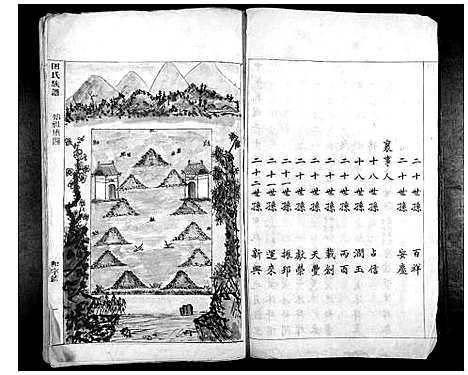 二十世孫 百祥
二十世孫 安慶
襄事人
十八世孫 占信
十八世孫 潤玉
二十世孫 丙酉
二十世孫 載創
二十世孫 天疊
二十世孫 獻榮
二十一世孫 維邦
二十一世孫 運來
二十二世孫 新興
田氏族譜